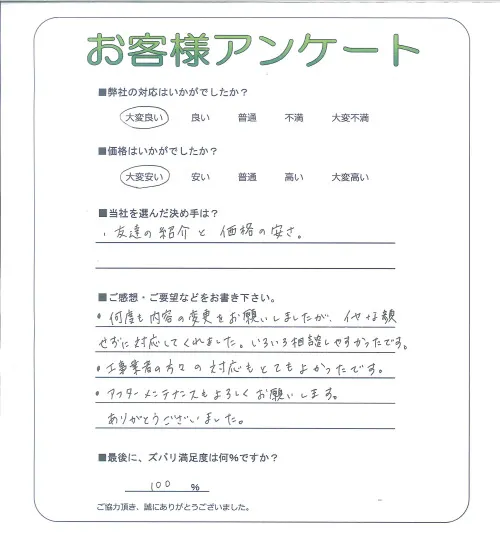 お客様アンケート
■弊社の対応はいかがでしたか？
大変良い 良い 普通 不満 大変不満
■価格はいかがでしたか？
大変安い 安い 普通 高い 大変高い
■当社を選んだ決め手は？
・友達の紹介と価格の安さ。
■ご感想・ご要望などをお書き下さい。
・何度も内容の変更をお願いしましたが、イヤな顔
せずに対応してくれました。いろいろ相談しやすかったです。
・工事業者の方々の対応もとてもよかったです。
・アフターメンテナンスもよろしくお願いします。
ありがとうございました。
■最後に、ズバリ満足度は何%ですか？
100 %
ご協力頂き、誠にありがとうございました。